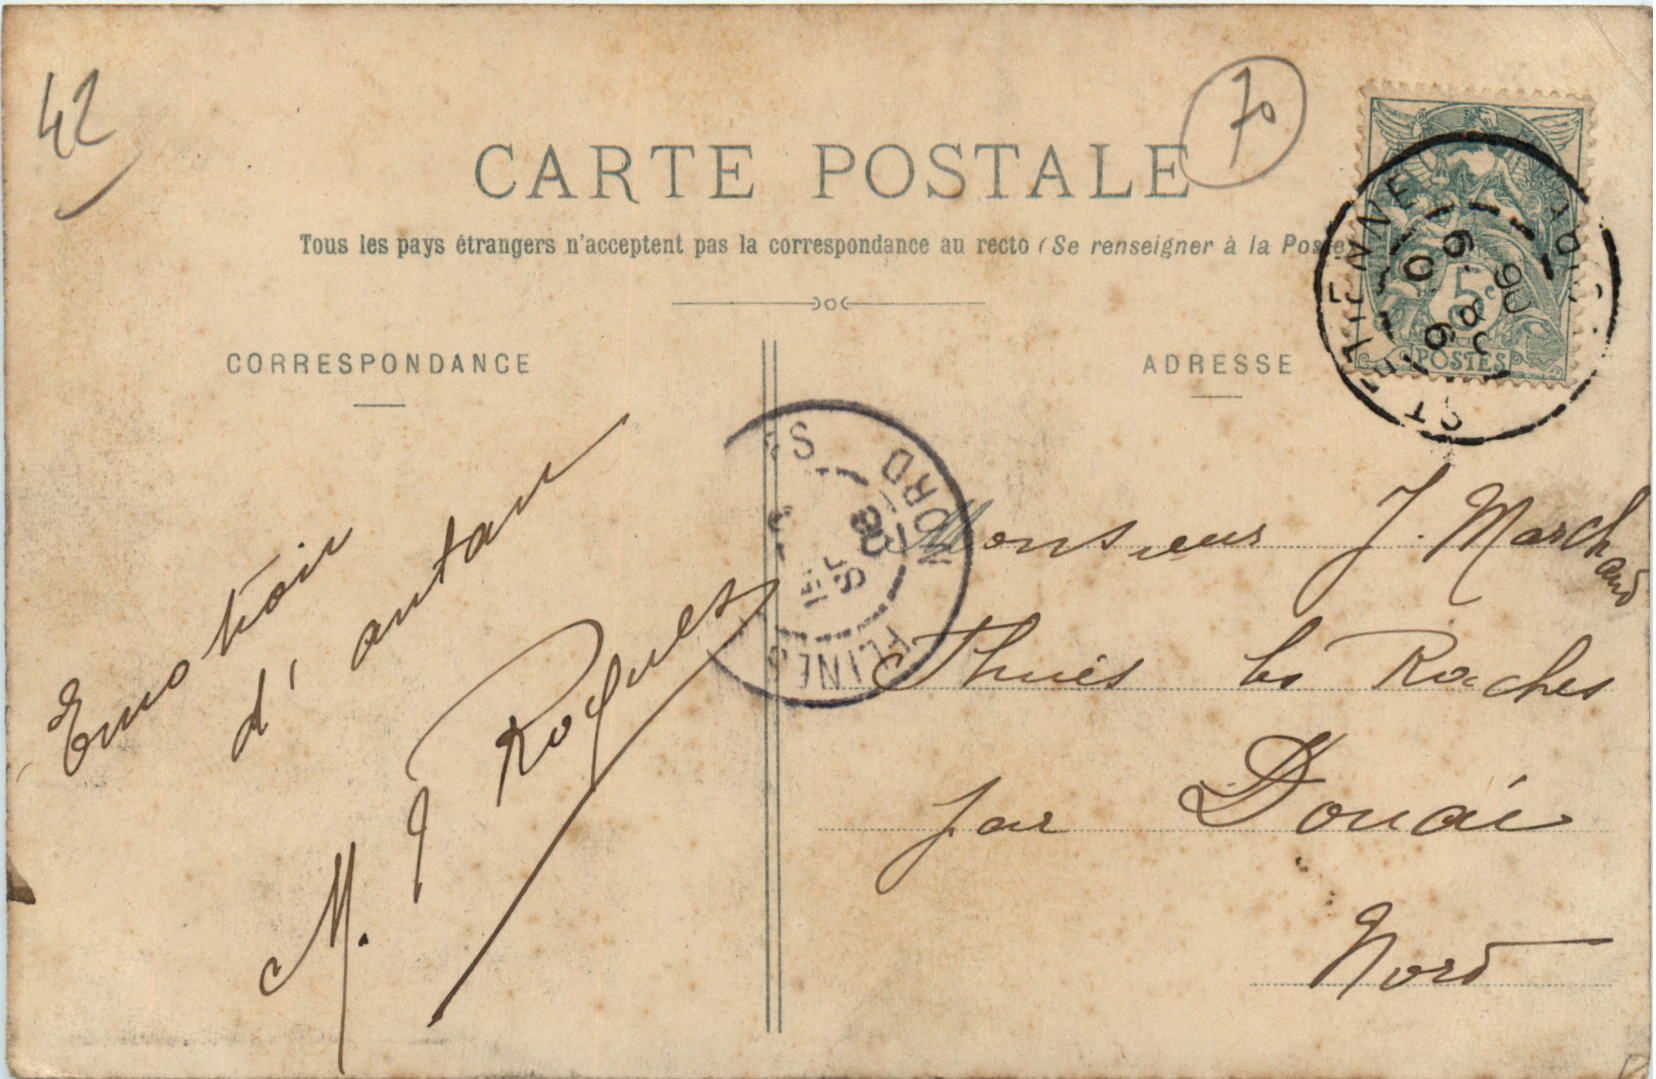 42
70
CARTE POSTALE
Tous les pays étrangers n'acceptent pas la correspondance au recto (Se renseigner à la Poste)
CORRESPONDANCE
ADRESSE
5c
POSTES
ST ETIENNE
NORD
FLINES
d'antan
M. Roques
Monsieur J. Marchand
Thuès les Raches
par Douai
Nord